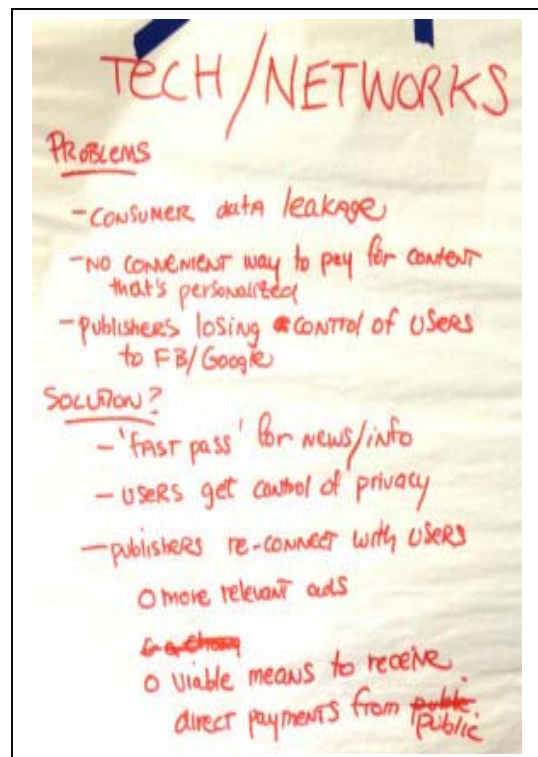 TECH/NETWORKS
PROBLEMS
- CONSUMER data leakage
- NO CONVENIENT way to pay for content
that's personalized
- publishers losing control of users
to FB/Google
SOLUTION?
- 'FAST pass' for NEWS/info
- USERS get control of privacy
- publishers re-connect with users
o more relevant ads
o viable means to receive
direct payments from public